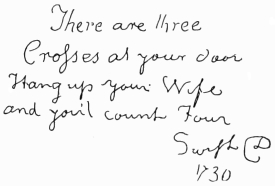 There are three
Crosses at your door
Hang up your Wife
and you'l count Four
Swift D
1730